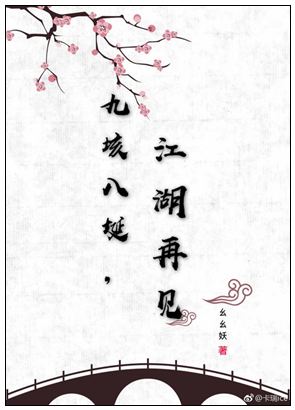 九垓八埏，
江湖再见
幺幺妖
著
@卡瑞ice